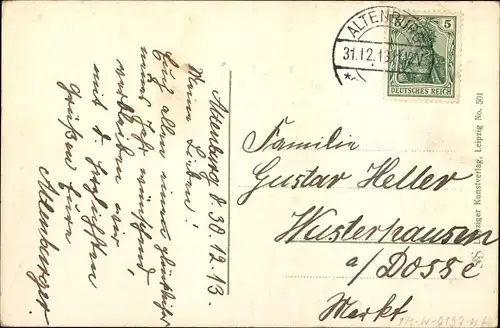 Altenburg d 30.12.13.
Meine Lieben!
Euch allen ein glückliches
neues Jahr wünschend
verbleiben wir
mit d. herzlichsten
Grüßen Eure
Altenburger.
ALTENBURG
31.12.13
5
DEUTSCHES REICH
Familie
Gustav Heller
Wusterhausen
a/Dosse
Markt
Leipziger Kunstverlag, Leipzig No. 501